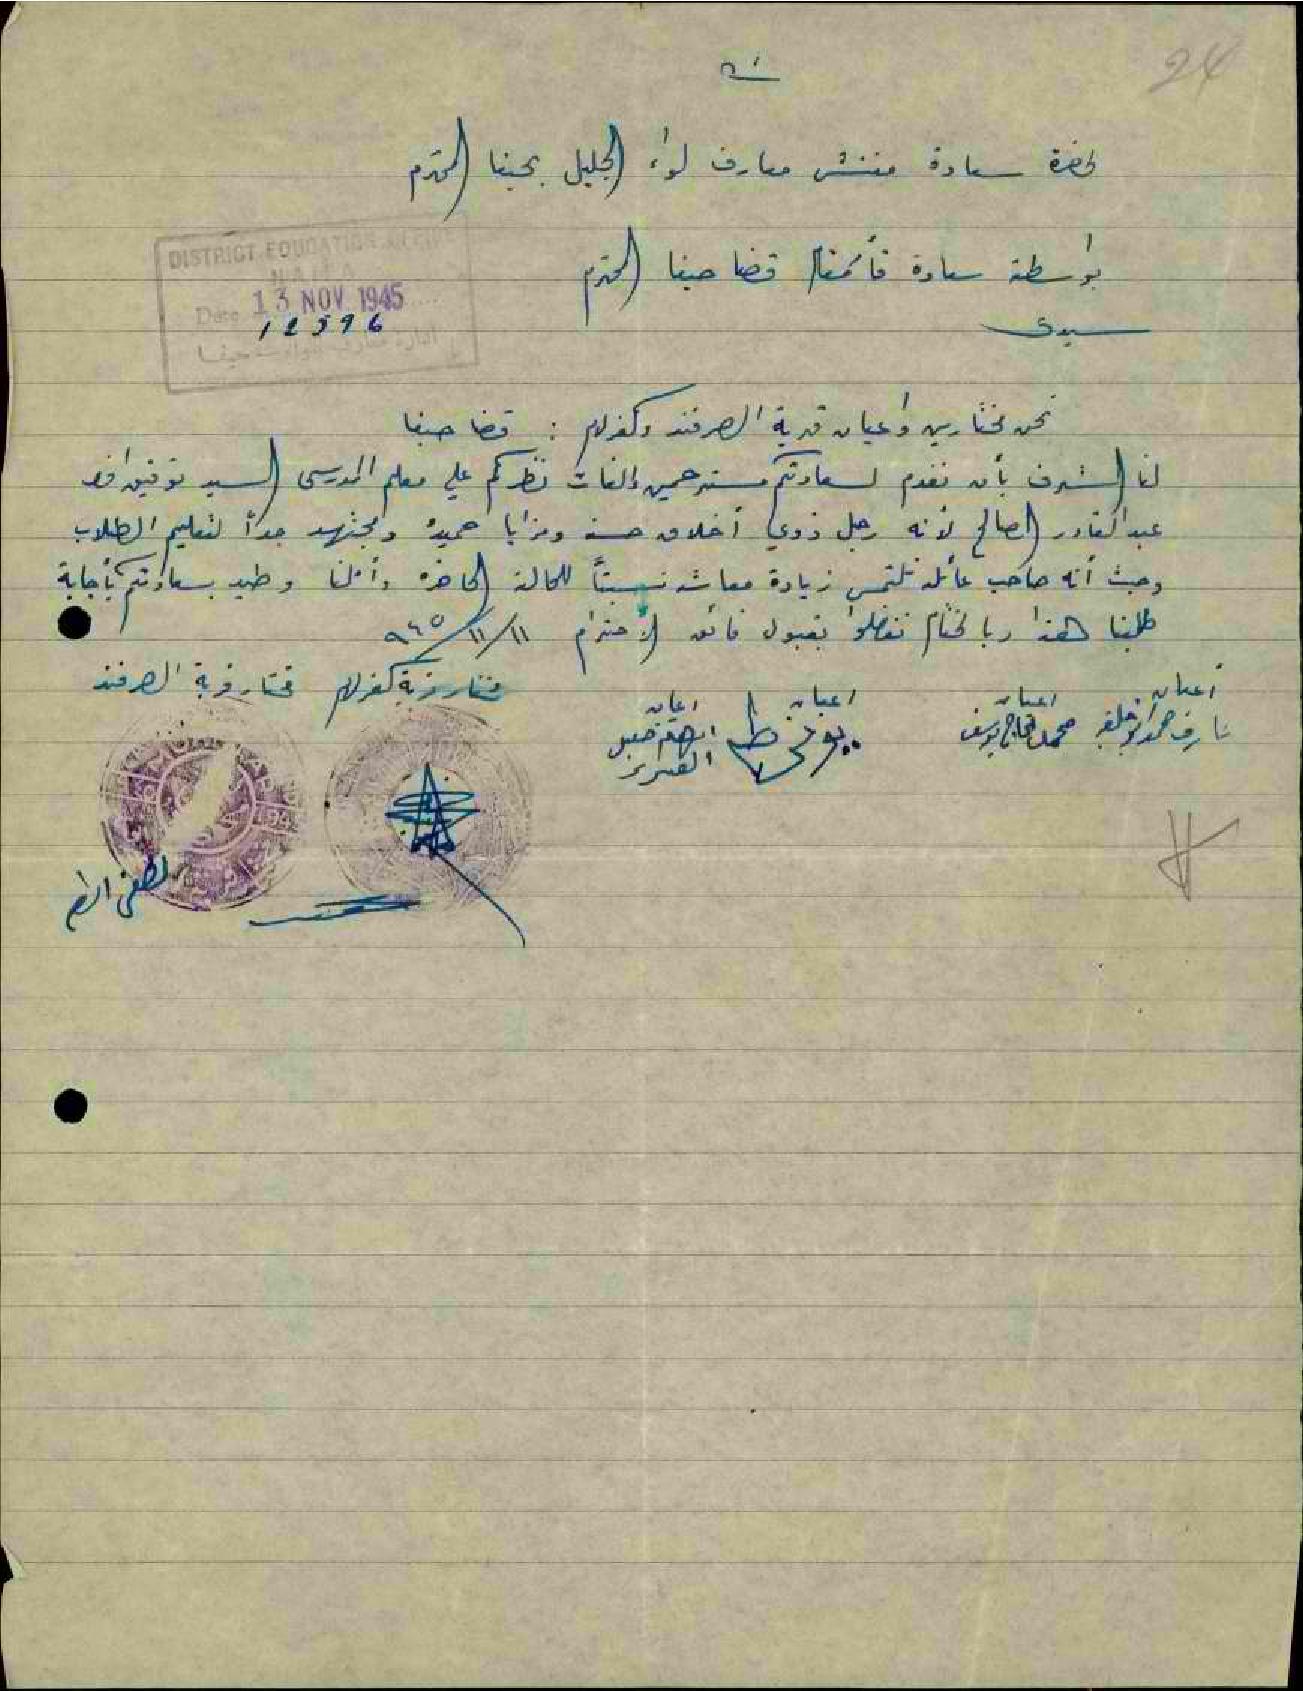 24
لحضرة سعادة مفتش معارف لواء الجليل بحيفا المحترم
بواسطة سعادة قأئمقام قضا حيفا المحترم
سيدي
DISTRICT EDUCATION OFFICE
HAIFA
Date 13 NOV 1945
12596
ادارة معارف لواء حيفا
نحن مختارين واعيان قرية الصرفند وكفرلام : قضا حيفا
لنا الشرف بأن نقدم لسعادتكم مسترحمين إلفات نظركم علي معلم المدرسي السيد توفيق افد
عبد القادر الصالح لأنه رجل ذوي أخلاق حسنه ومزايا حميده ومجتهد جداً لتعليم الطلاب
وحيث أنه صاحب عائله نلتمس زيادة معاشه نسبتاً للحالة الحاضره وأملنا وطيد بسعادتكم بأجابة
طلبنا هذا وبالختام تفضلوا بقبول فائق الأحترام ١١/١١/٩٤٥
أعيان اعيان اعيان اعيان مختار قرية كفرلام مختار قرية الصرفند
محمد الحاج يوسف
ابراهيم خليل